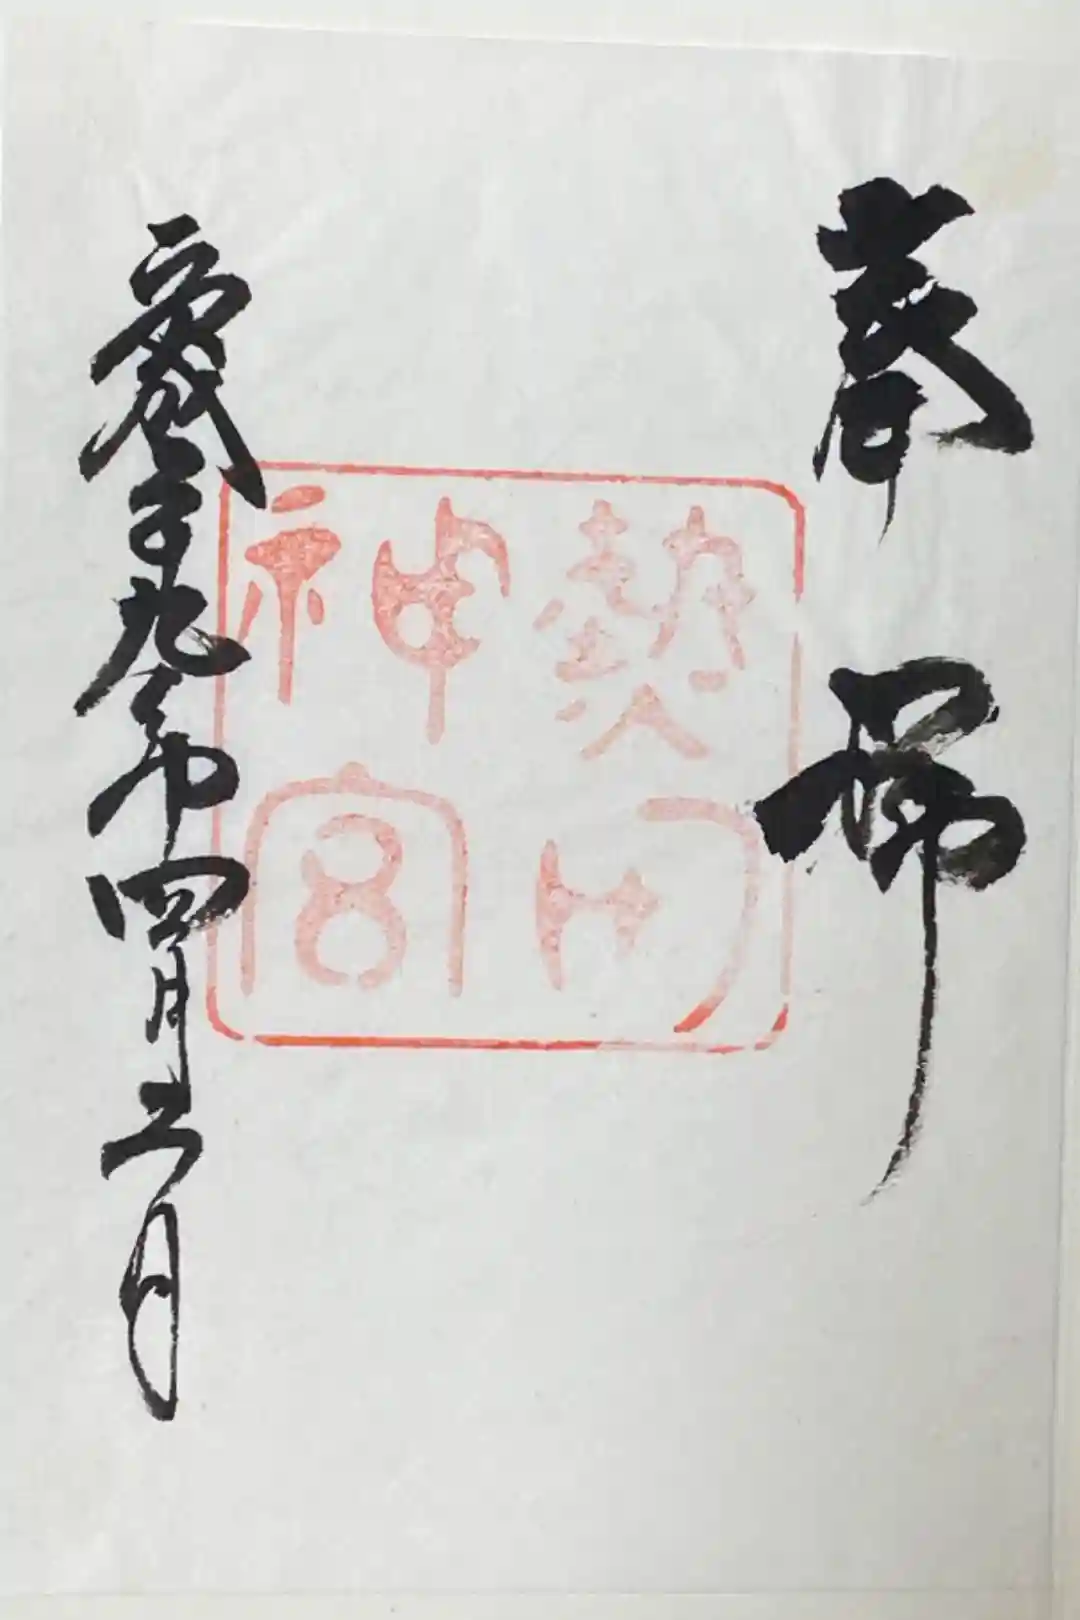 奉拝
熱田
神宮
平成二十九年四月日